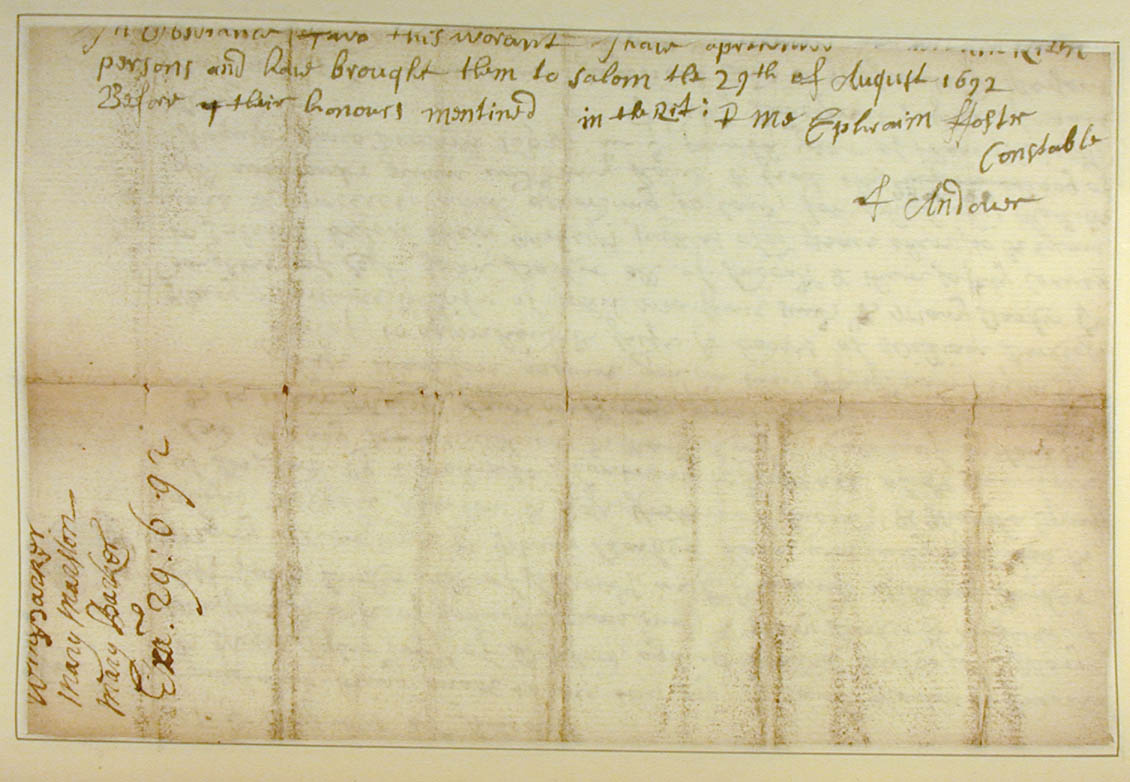 this worant I have
persons and have brought them to salom the 29th of August 1692
Before their honours mentined in the Ret: P me Ephraim Foster
Constable
of Andover
Wm Barker
Mary Marston
Mary Barker
Exa. 29: 6 92